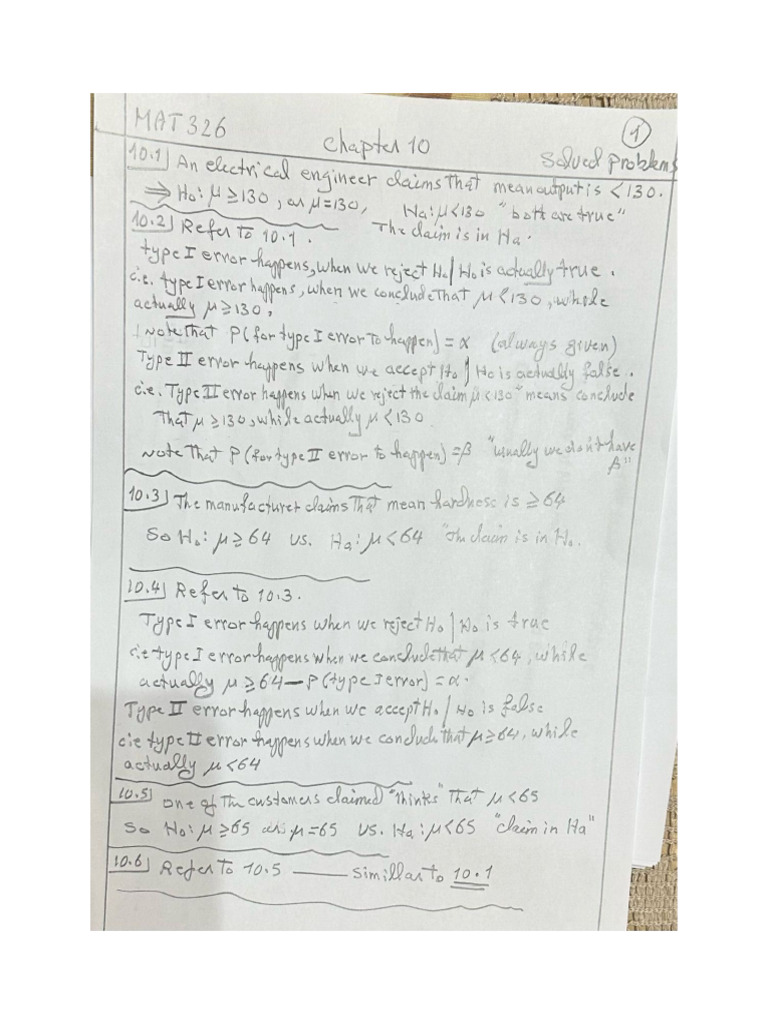 MAT 326
Chapter 10
1
Solved Problems
10.1) An electrical engineer claims that mean output is < 130.
⇒ H₀: μ ≥ 130, or μ = 130, Ha: μ < 130 "both are true"
The claim is in Ha.
10.2) Refer to 10.1.
type I error happens, when we reject H₀ | H₀ is actually true.
i.e. type I error happens, when we conclude that μ < 130, while
actually μ ≥ 130,
Note that P(for type I error to happen) = α (always given)
Type II error happens when we accept H₀ | H₀ is actually false.
i.e. Type II error happens when we reject the claim μ < 130 " means conclude
That μ ≥ 130, while actually μ < 130
note that P(for type II error to happen) = β "usually we don't have
β"
10.3) The manufacturer claims that mean hardness is ≥ 64
So H₀: μ ≥ 64 vs. Ha: μ < 64 "The claim is in H₀.
10.4) Refer to 10.3.
Type I error happens when we reject H₀ | H₀ is true
i.e type I error happens when we conclude that μ < 64, while
actually μ ≥ 64 — P(type I error) = α.
Type II error happens when we accept H₀ | H₀ is false
i.e type II error happens when we conclude that μ ≥ 64, while
actually μ < 64
10.5) one of the customers claimed "thinks" that μ < 65
So H₀: μ ≥ 65 or μ = 65 vs. Ha: μ < 65 "claim in Ha"
10.6) Refer to 10.5 — Simillar to 10.1